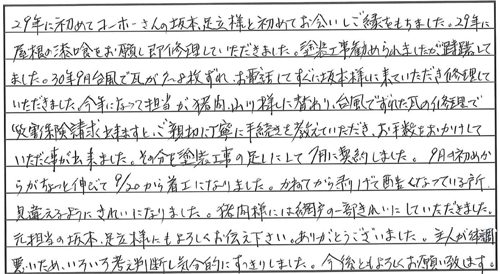 29年に初めてユーホーさんの坂本、足立様と初めてお会いしご縁をもちました。29年に
屋根の漆喰をお願し即修理していただきました。塗装工事勧められましたが躊躇して
ました。30年9月台風で瓦が7~8枚ずれ、お電話してすぐに坂本様に来ていただき修理して
いただきました。今年になって担当が猪内、山川様に替わり、台風でずれた瓦の修理で
災害保険請求出来ますと、ご親切に丁寧に手続きを教えていただき、お手数をおかけして
いただく事が出来ました。その分を塗装工事の足しにして7月に契約しました。9月の初めか
らがちょっと伸びて9/20から着工になりました。かねてから剥げて酷くなっている所
見違えるようにきれいになりました。猪内様には網戸の一部きれいにしていただきました。
元担当の坂本、足立様にもよろしくお伝え下さい。ありがとうございました。主人が体調
悪いため、いろいろ考え判断し気分的にすっきりしました。今後ともよろしくお願い致します。